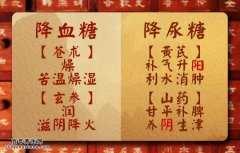 降血糖
【苍术】
燥
苦温燥湿
【玄参】
润
滋阴降火
降尿糖
【黄芪】
补气升阳
利水消肿
【山药】
甘平补脾
养阴生津